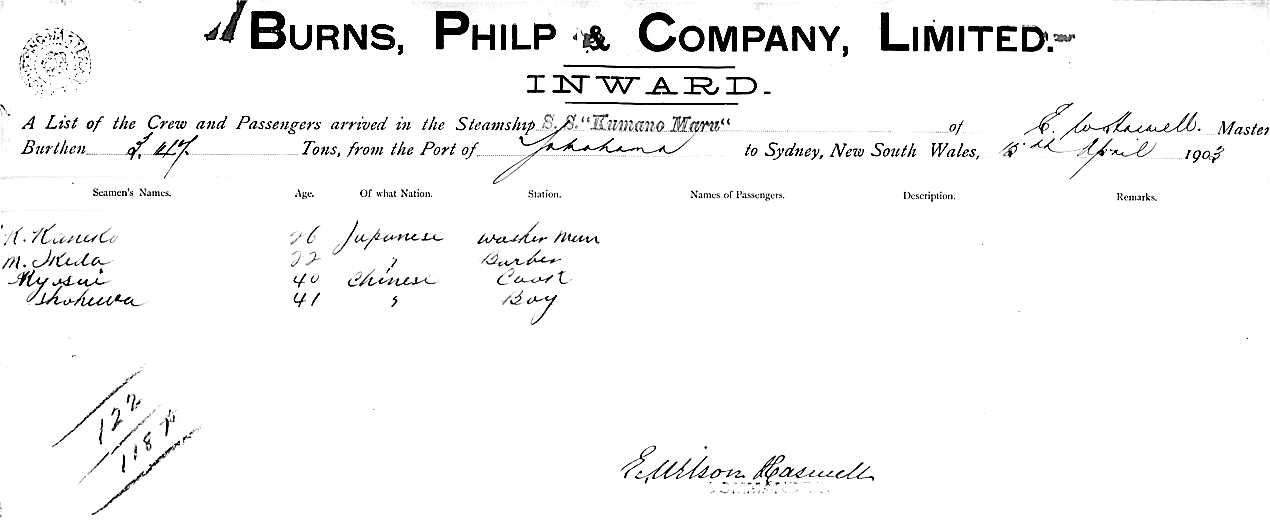 BURNS, PHILP & COMPANY, LIMITED.
INWARD.
A List of the Crew and Passengers arrived in the Steamship S. S. "Kumano Maru" of E. W. Haswell. Master
Burthen Tons, from the Port of Yokohama to Sydney, New South Wales, April 1903
Seamen's Names. Age. Of what Nation. Station. Names of Passengers. Description. Remarks.
K. Kaneko 26 Japanese washer man
M. Ikeda 22 " Barber
40 Chinese Cook
41 " Boy
122
118
E. Wilson Haswell